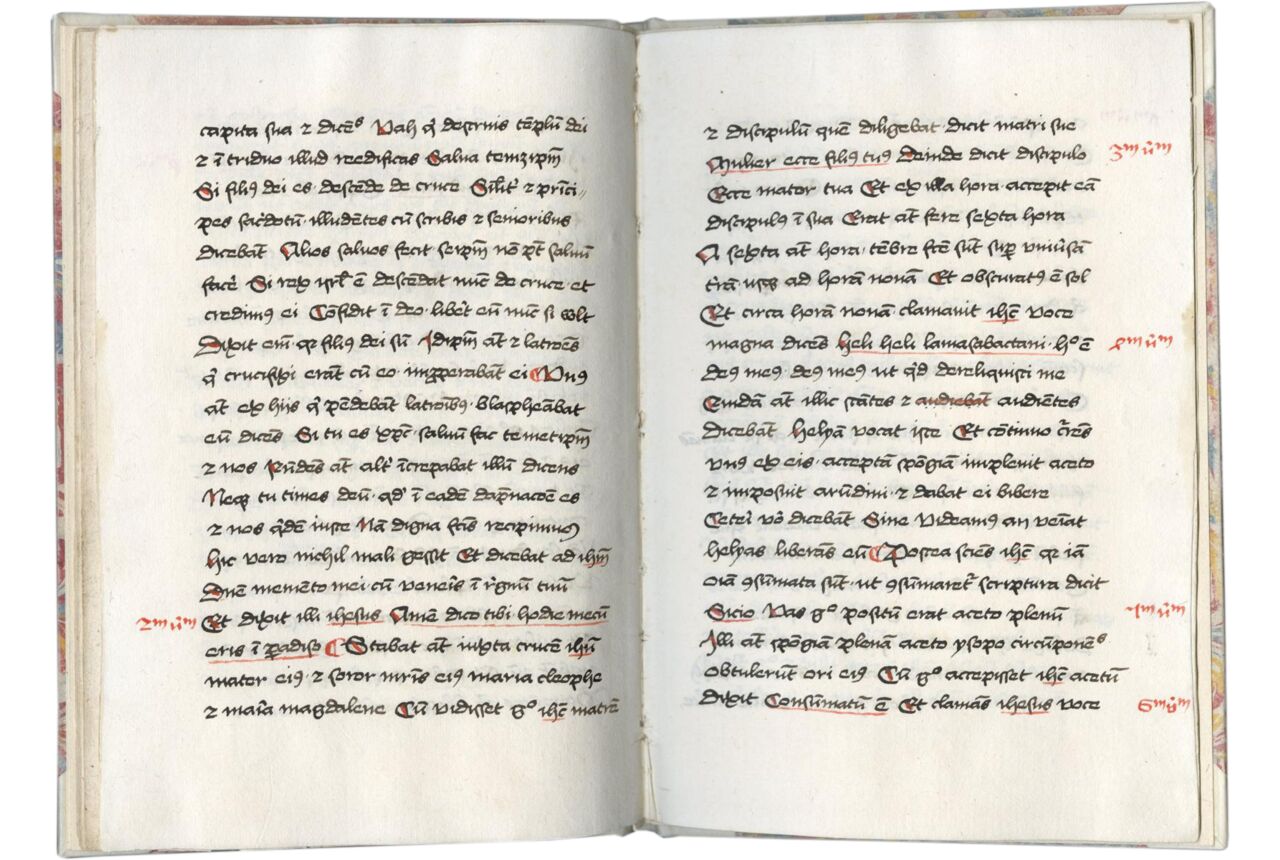 capita sua ⁊ dicēs Vah q̇ destruis tēplū dei
⁊ ī triduo illud reedificas Salua temꝫipm̄
Si filiꝰ dei es descēde de cruce Silit̄ ⁊ prīci〃
pes sac̄dotū illudētes cū scribis ⁊ senioribus
dicebāt Alios saluos fecit seipm̄ nō pt̄ saluū
facē Si rex isrl̄ ē descēdat nūc de cruce et
credimꝰ ei Cōfidit ī deo libet̄ eū nūc si vult
Dixit em̄ qꝛ filiꝰ dei sū Idipm̄ at̄ ⁊ latroēs
q̇ crucifixi erāt cū eo imꝓperabāt ei Vnꝰ
at̄ ex hijs q̇ pēdebāt latroībꝰ blasphēabat
eū dicēs Si tu es xp̄c saluū fac temetipm̄
⁊ nos Rn̄dēs at̄ alt̄ īcrepabat illū dicens
Neqꝫ tu times deū qd̓ ī eadē dāpnacōe es
⁊ nos q̇dē iuste Nā digna fc̄is recipimus
hic vero nichil mali gessit Et dicebat ad ih̄m
Dn̄e memēto mei cū venēis ī r̓gnū tuū
2m v̄m Et dixit illi ihesus Amē dico tibi hodie mecū
eris ī ꝑadiso Stabat at̄ iuxta crucē ih̄u
mater eiꝰ ⁊ soror mr̄is eiꝰ maria cleophe
⁊ mar̄ia magdalene Cū vidisset gͦ ih̄c matrē
⁊ discipulū quē diligebat dicit matri sue
Mulier ecce filiꝰ tuꝰ Deinde dicit discipulo 3m v̄m
Ecce mater tua Et ex illa hora accepit eā
discipulꝰ ī sua Erat at̄ fere sexta hora
A sexta at̄ hora tēbre fc̄e sūt suꝑ vniūsā
t̄rā usqꝫ ad horā nonā Et obscuratꝰ ē sol
Et circa horā nonā clamauit ih̄c voce
magna dicēs heli heli lamasabactani hͦ ē 4m v̄m
deꝰ meꝰ deꝰ meꝰ ut q̇d dereliquisti me
Quidā at̄ illic stātes ⁊ audiebāt audiētes
dicebāt helyā vocat iste Et cōtinuo c̄rēs
vnꝰ ex eis acceptā spōgiā impleuit aceto
⁊ imposuit arūdini ⁊ dabat ei bibere
Ceteri vͦ dicebāt Sine videamꝰ an veīat
helyas liberās eū Postea sciēs ih̄c qꝛ iā
oīa ꝯsūmata sūt ut ꝯsūmaret̄ scriptura dicit
Sicio Vas gͦ positū erat aceto plenū 5m v̄m
Illi at̄ spōgiā plenā aceto ysopo circūponēs
obtulerūt ori eiꝰ Cū gͦ accepisset ih̄c acetū
dixit Consūmatū ē Et clamās ihesus voce 6m v̄m